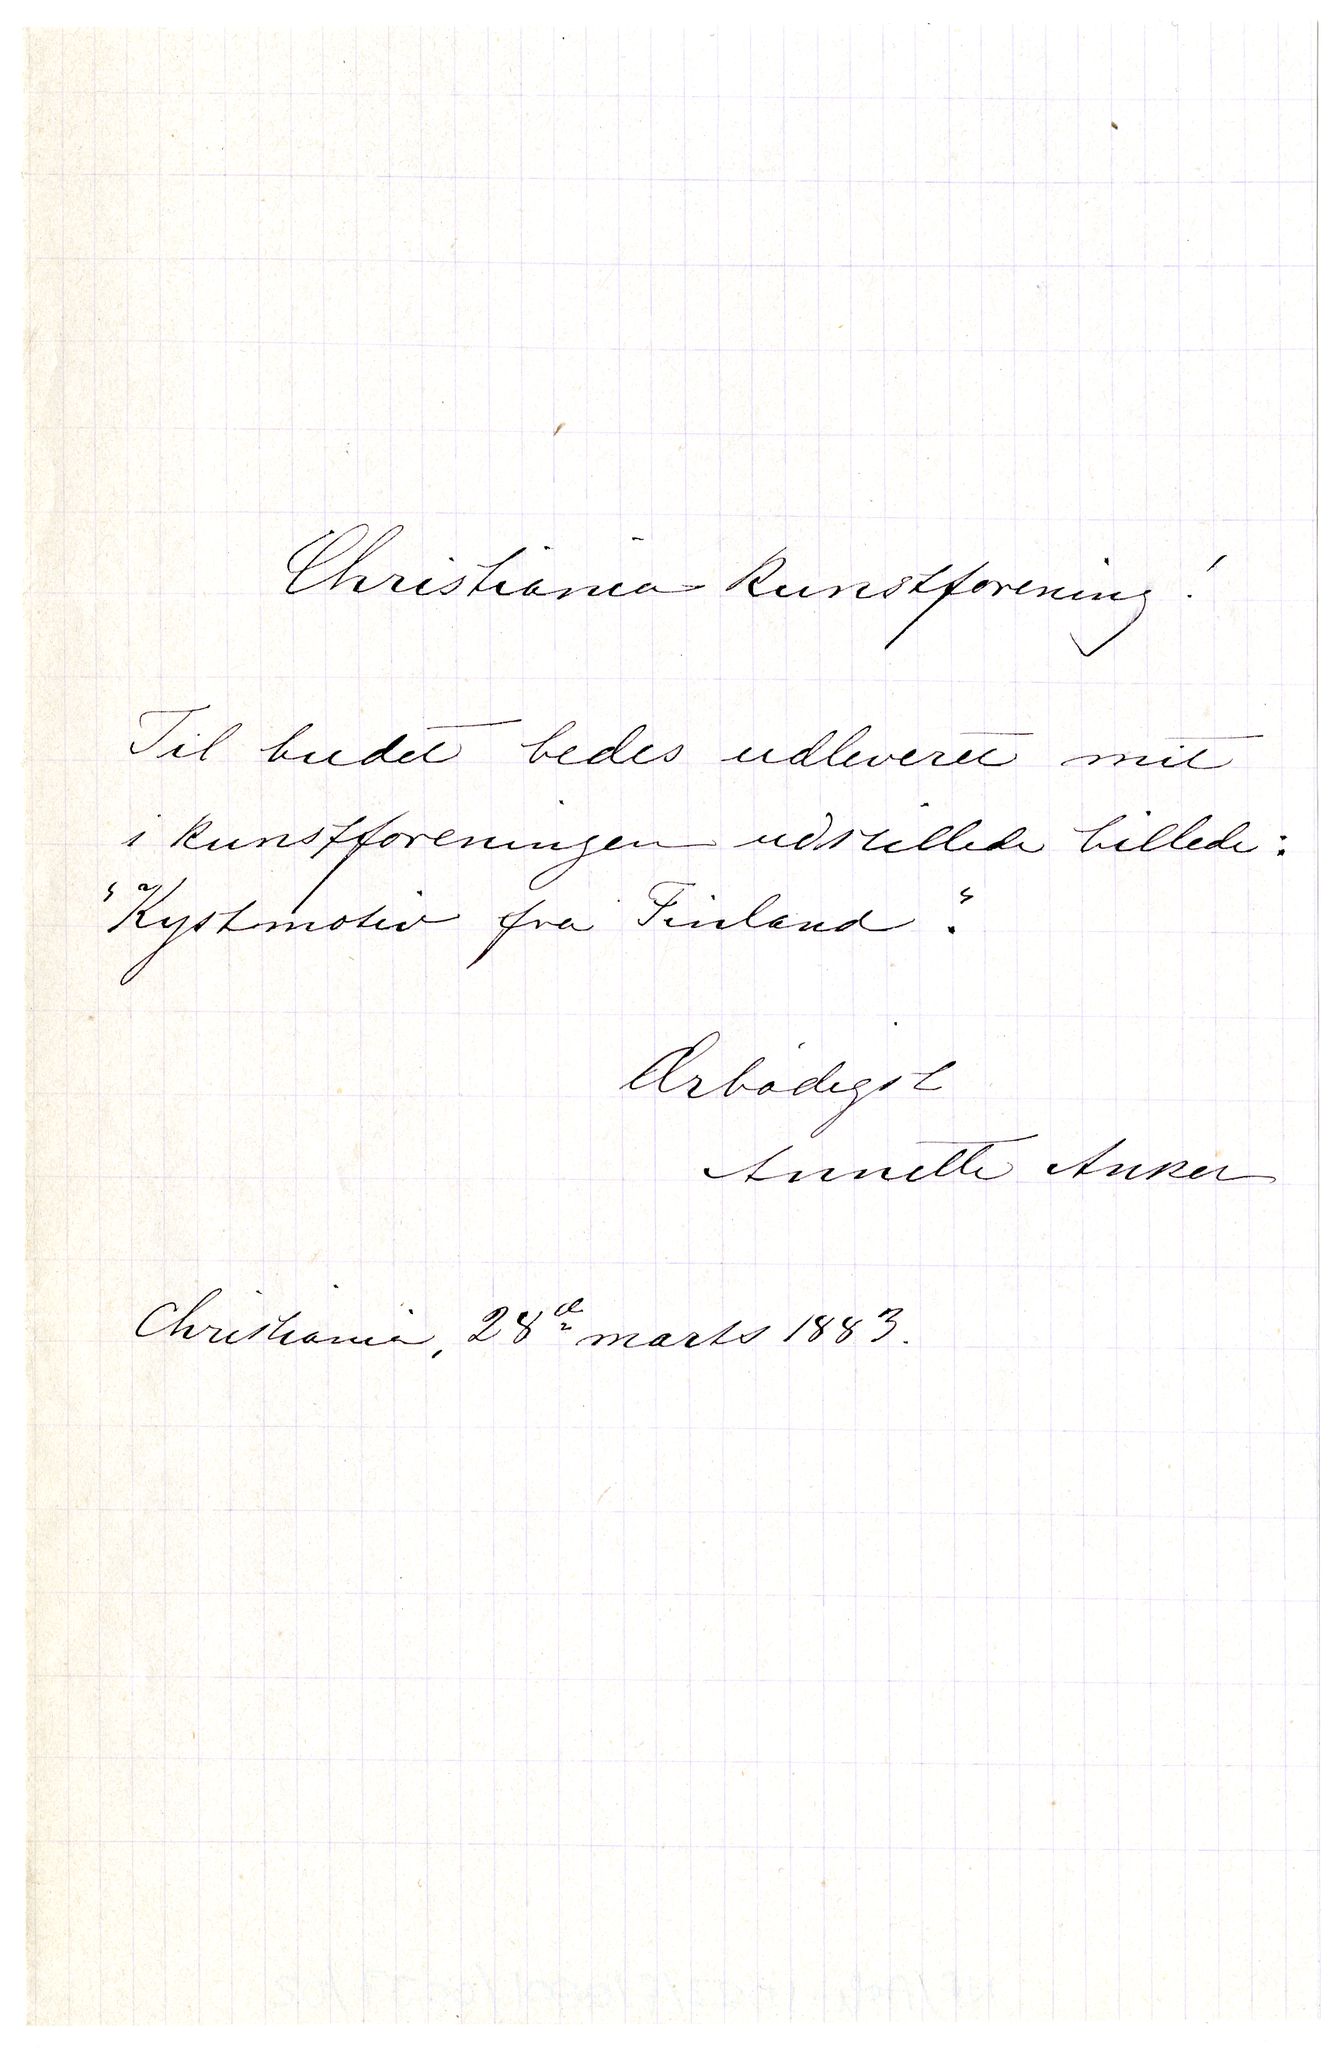 Christiania kunstforening!
Til budet bedes udleveret mit
i kunstforeningen udstillede billede:
"Kystmotiv fra Finland".
Ærbødigst
Annette Anker
Christiania, 28de marts 1883.